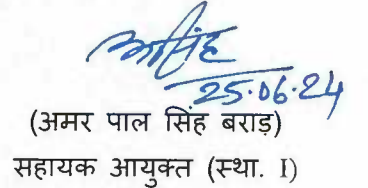 25.06.24
(अमर पाल सिंह बराड़)
सहायक आयुक्त (स्था. I)